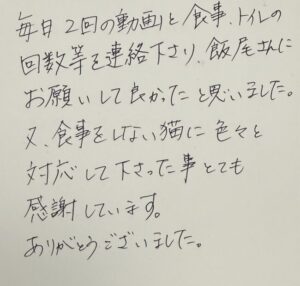 毎日2回の動画と食事、トイレの
回数等を連絡下さり、飯尾さんに
お願いして良かったと思いました。
又、食事をしない猫に色々と
対応して下さった事とても
感謝しています。
ありがとうございました。